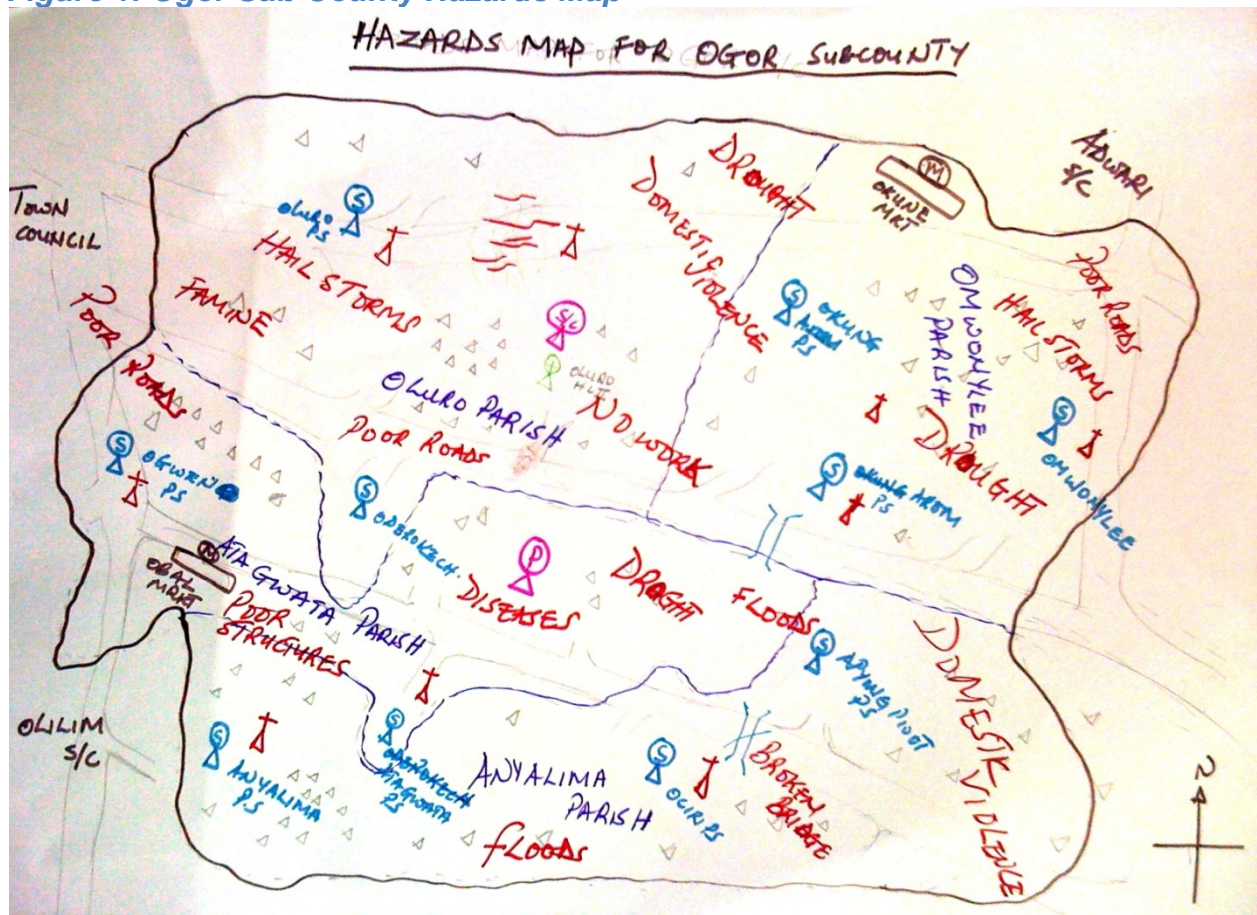 Figure 1: Ogor Sub-County Hazards Map
HAZARDS MAP FOR OGOR SUBCOUNTY
ADWARI
S/C
TOWN
COUNCIL
M
OKUNE
MRT
DROUGHT
DOMESTIC VIOLENCE
S
OLURO
PS
HAIL STORMS
FAMINE
POOR
ROADS
S/C
OLURO
OLURO PARISH
NO WORK
POOR ROADS
S
OKUNG
PS
OMWONYLEE
PARISH
HAIL STORMS
POOR ROADS
DROUGHT
S
OMWONYLEE
S
OKUNG AROM
PS
S
OGWEN
PS
S
ODEROKECH.
M
OBAL
MRKT
ATAGWATA PARISH
POOR
STRUCTURES
P
DISEASES
DROGHT
FLOODS
S
APYING PIVOT
PS
DOMESTIK
VIOLENCE
OLILIM
S/C
S
ANYALIMA
PS
S
ODEROKECH
ATAGWATA
PS
ANYALIMA
PARISH
S
OCIR PS
BROKEN
BRIDGE
FLOODS